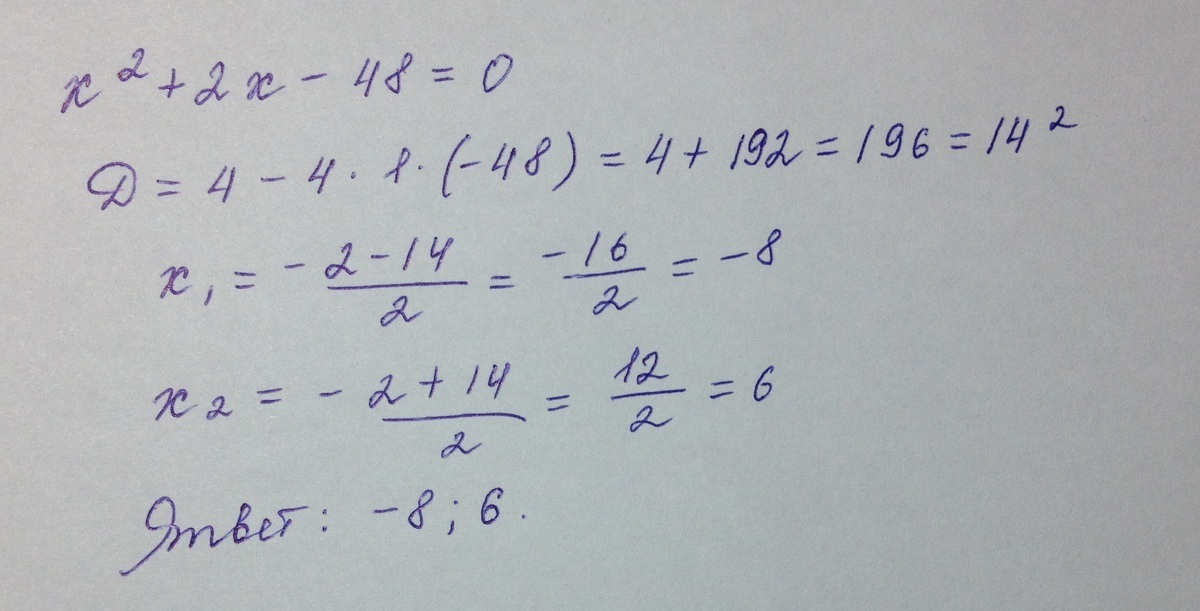 x² + 2x - 48 = 0
Д = 4 - 4 · 1 · (-48) = 4 + 192 = 196 = 14²
x₁ = -2-14/2 = -16/2 = -8
x₂ = -2+14/2 = 12/2 = 6
Ответ: -8; 6.